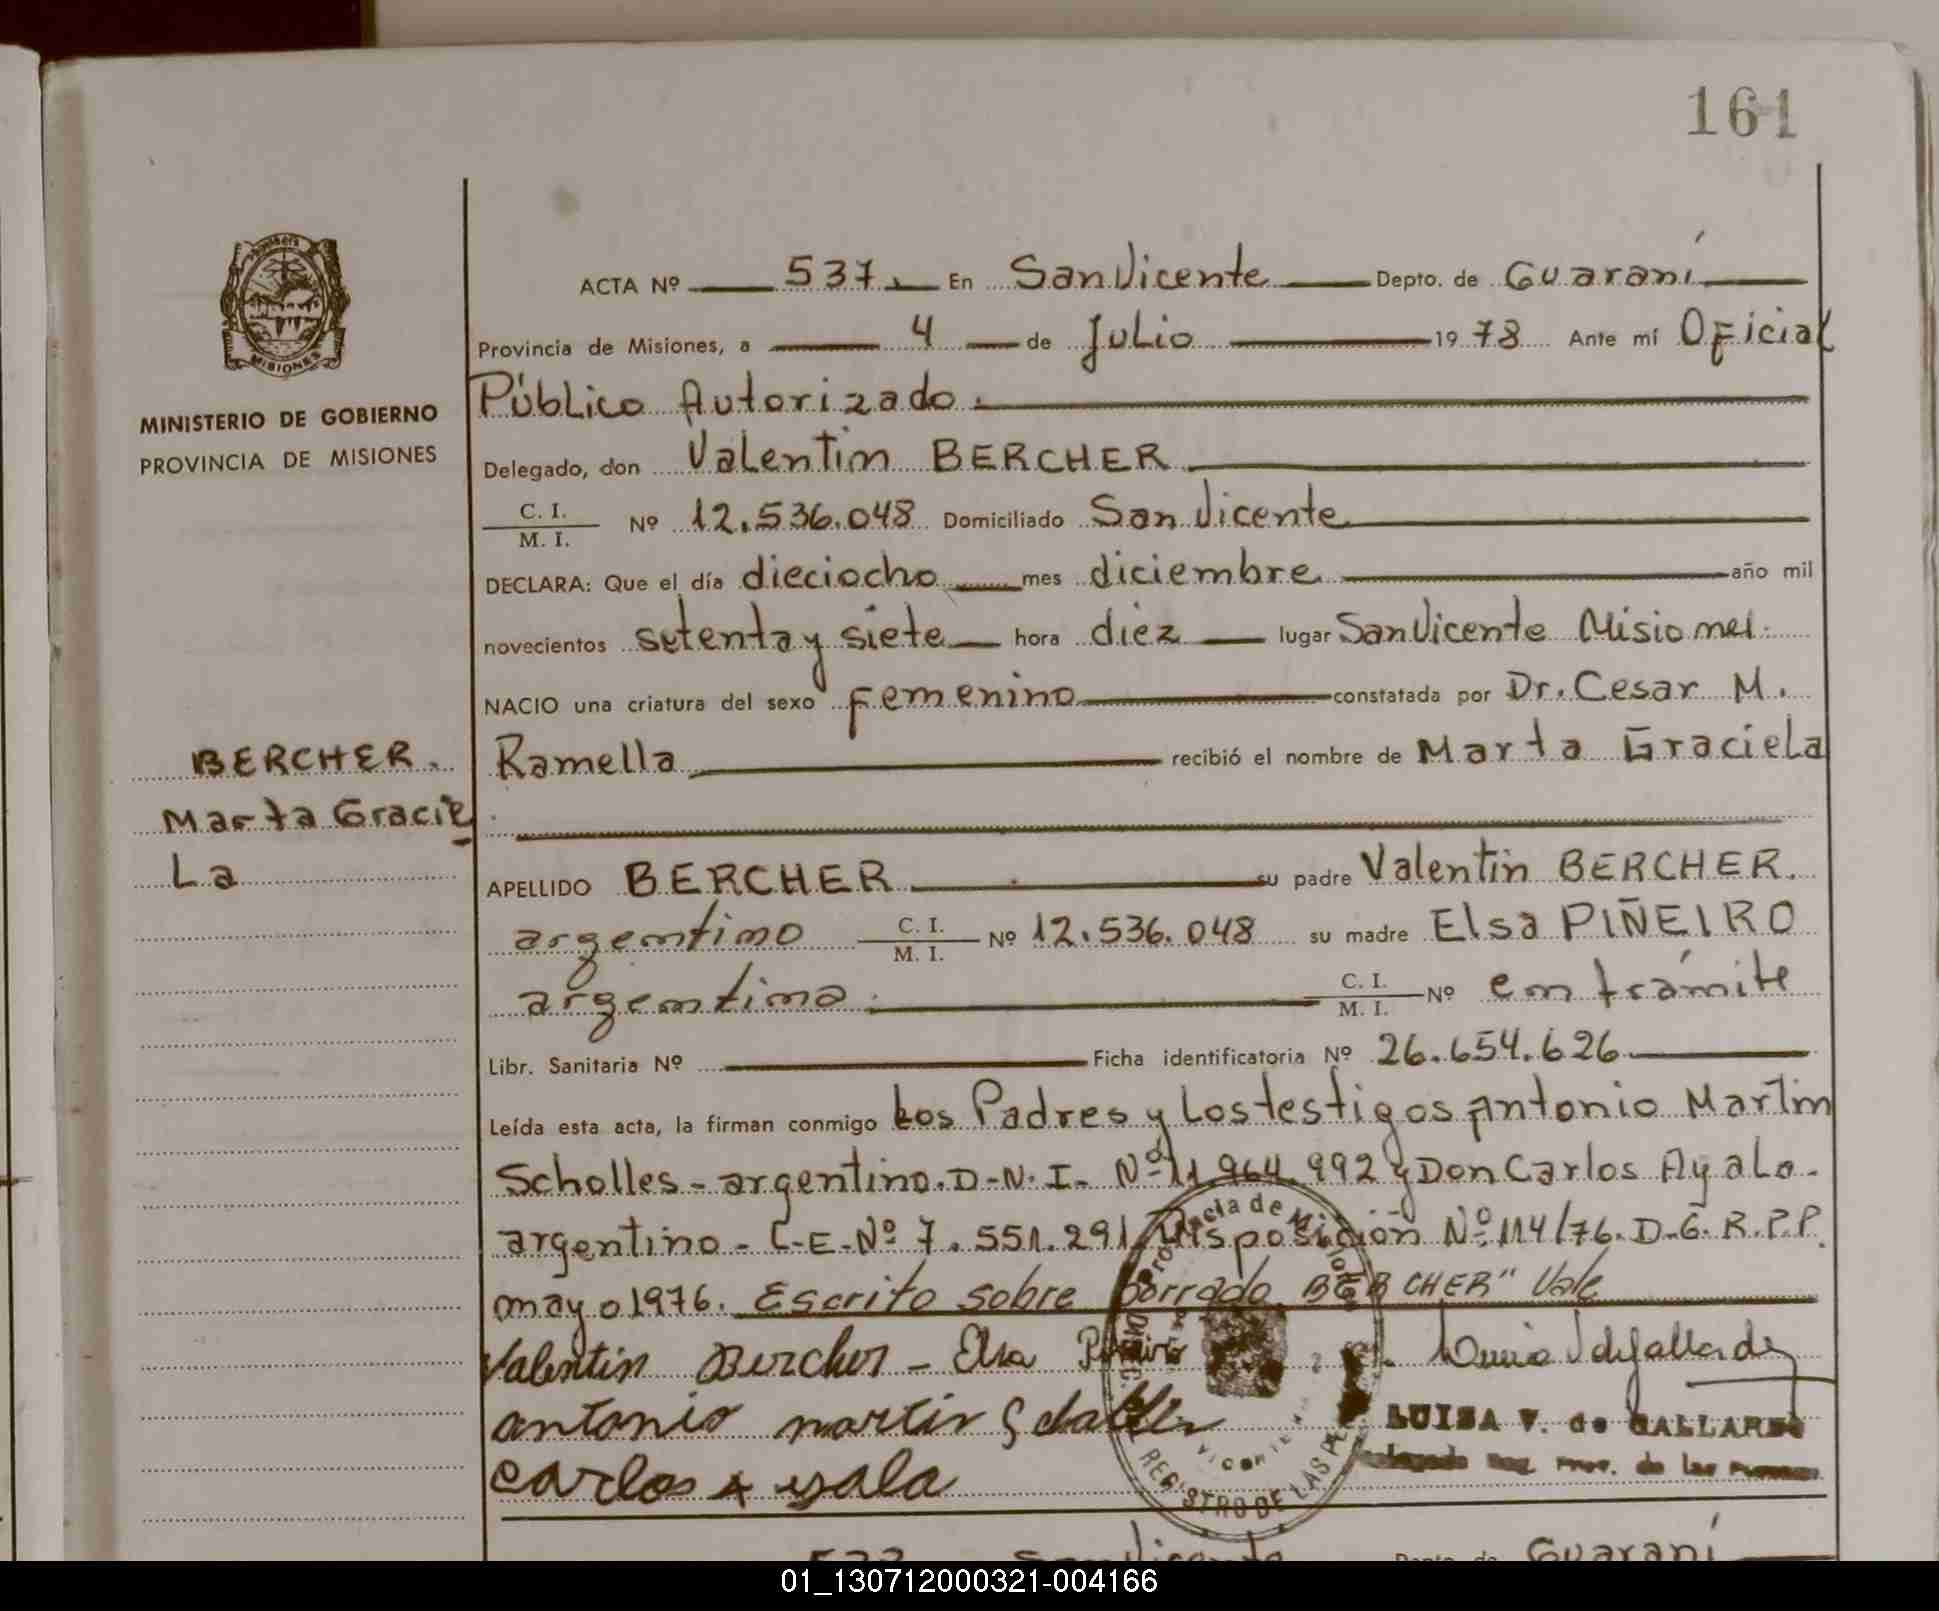 161
ACTA Nº 537. En San Vicente Depto. de Guaraní
Provincia de Misiones, a 4 de Julio 1978 Ante mí Oficial
Público Autorizado.
MINISTERIO DE GOBIERNO
PROVINCIA DE MISIONES
Delegado, don Valentin BERCHER
C. I.
M. I. Nº 12.536.048 Domiciliado San Vicente
DECLARA: Que el día dieciocho mes diciembre año mil
novecientos setenta y siete hora diez lugar San Vicente Misiones.
NACIO una criatura del sexo Femenino constatada por Dr. Cesar M.
Ramella recibió el nombre de Marta Graciela
BERCHER.
Marta Gracie
La
APELLIDO BERCHER su padre Valentin BERCHER.
argentino C. I. M. I. Nº 12.536.048 su madre Elsa PIÑEIRO
argentina. C. I. M. I. Nº en trámite
Libr. Sanitaria Nº Ficha identificatoria Nº 26.654.626
Leída esta acta, la firman conmigo Los Padres y Los testigos Antonio Martin
Scholles - argentino. D-N. I- Nº 11.964.992 y Don Carlos Ayala.
argentino - C-E-Nº 7.551.291 Disposición Nº 114/76. D-G. R.P.P.
mayo 1976. Escrito sobre borrado BERCHER" Vale
Valentin Bercher - Elsa Piñeiro
antonio martin
carlos ayala
LUISA V. de GALLARDO
Provincia de
REGISTRO DE LAS
MISIONES
537 San Vicente Depto. de Guaraní
01_130712000321-004166